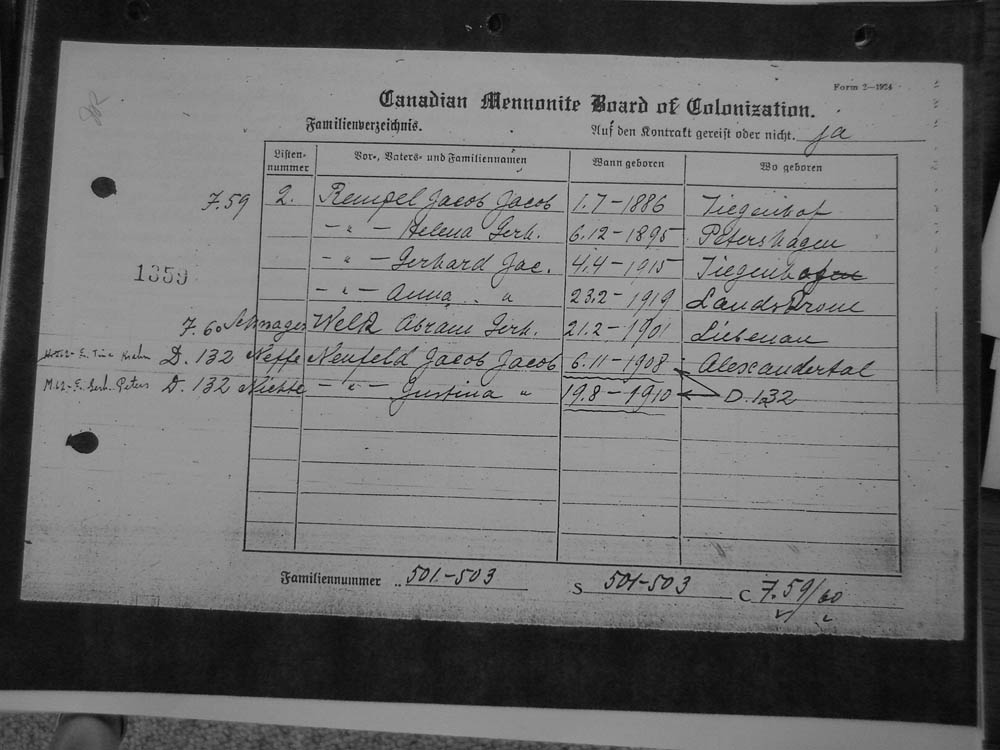 Form 2—1924
Canadian Mennonite Board of Colonization.
Familienverzeichnis. Auf den Kontrakt gereist oder nicht. ja
Listen-nummer Vor-, Vaters- und Familiennamen Wann geboren Wo geboren
7.59 2. Rempel Jacob Jacob 1.7-1886 Tiegenhof
- " - Helena Gerh. 6.12-1895 Petershagen
- " - Gerhard Jac. 4.4-1915 Tiegenhofen
1359
- " - Anna " 23.2-1919 Landskrone
7.60 Schwager Welk Abram Gerh. 21.2-1901 Liebenau
D. 132 Neffe Neufeld Jacob Jacob 6.11-1908 Alexandertal
M.62-E. Gerh. Peters D. 132 Nichte - " - Justina " 19.8-1910 D. 132
Familiennummer 501-503 S 501-503 C 7.59/60